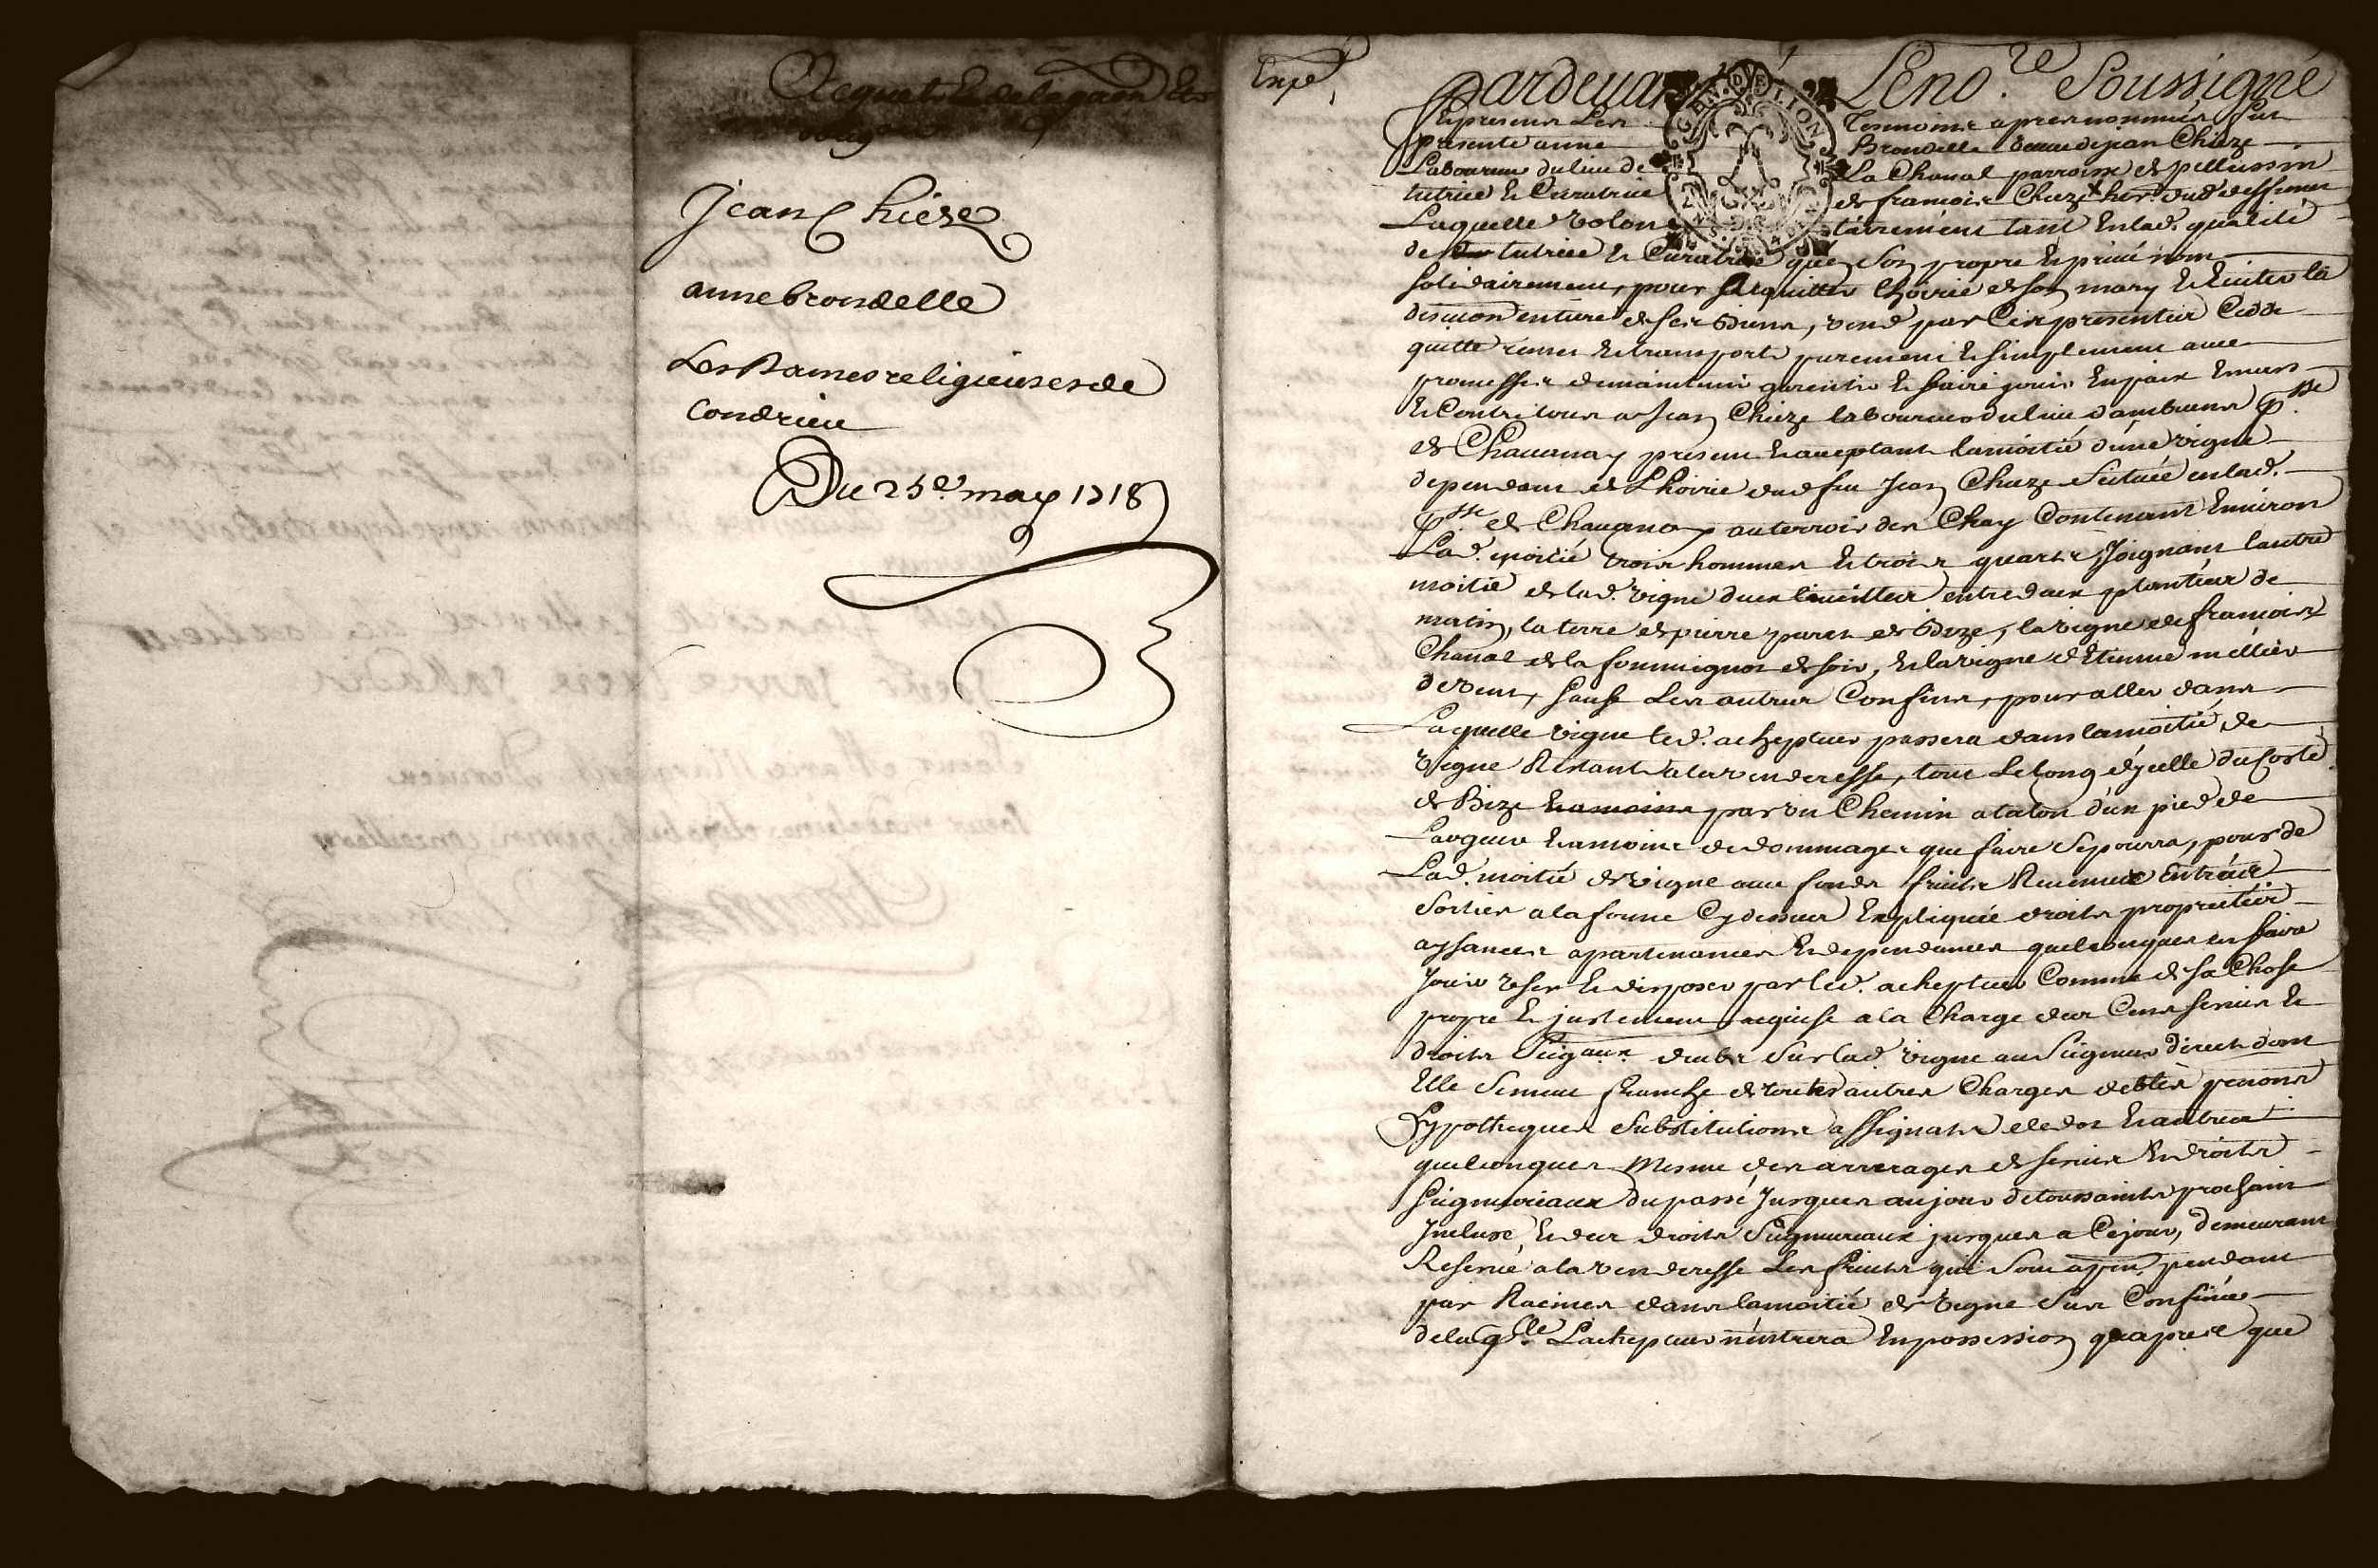 Acquet
Jean Chieze
anne brondelle
Les Dames religieuses de
Condrieu
Du 25e. may 1718
Expé
Pardevant Le no.re Soussigné
Et presens Les Tesmoins apres nommés fut
presente anne Brondelle veuve de jean Chieze
Laboureur du lieu de La Chanal parroisse de pellussin
tutrice & Curatrice de francois Chieze her. dud. deffunt
Laquelle volontairement tant En lad. qualité
de tutrice & Curatrice qu'en Son propre & privé nom
solidairement, pour acquitter L'hoirie de son mary & Eviter la
discution entiere de ses Biens, vend par Ces presentes Cedde
quitte remet & transporte purement & simplement avec
promesse de maintenir garentir & faire jouir En paix Envers
& Contre tous a Jean Chieze laboureur du lieu d'ambuens p.sse
de Chavanay present & acceptant la moitié d'une vigne
dependant de L'hoirie dud. feu Jean Chieze Scituée en lad.
p.sse de Chavanay au terroir des Chay Contenant Environ
Lad. moitié trois hommes & trois quarts Joignant l'autre
moitié de lad. vigne entre deux de
matin, la terre de pierre paret de Bize, la vigne de francois
Chanal de la de soir, & la vigne d'Etienne mellier
de vent, sauf Les autres Confins, pour aller dans
Laquelle vigne led. achepteur passera dans la moitié de
vigne Restante a la venderesse, tout Le long d'ycelle du Costé
de Bize par un Chemin a talon d'un pied de
Largeur & a moins de dommage que faire Se pourra, pour de
Lad. moitié de vigne avec fonds fruits Revenus Entrées
Sorties a la forme Cy dessus Expliquée droits proprietés
aysances apartenances & dependances quelconques en faire
Jouir user & disposer par led. achepteur Comme de sa Chose
propre & justement acquise a la Charge des Cens servis &
droits Seig.aux deubs Sur lad. vigne au Seigneur direct dont
Elle Se meut franche de toutes autres Charges debtes pensions
Hypotheques Substitutions assignats de dot & autres
quelconques Mesme des arrerages de servis & droits
Seigneuriaux du passé Jusques au jour de toussaints prochain
Incluse, & des droits Seigneuriaux jusques a Ce jour, demeurant
Reservé a la venderesse Les fruits qui Sont a pendant
par Racines dans la moitié de vigne Sus Confinée
de laq.lle L'achepteur n'entrera En possession qu'apres que